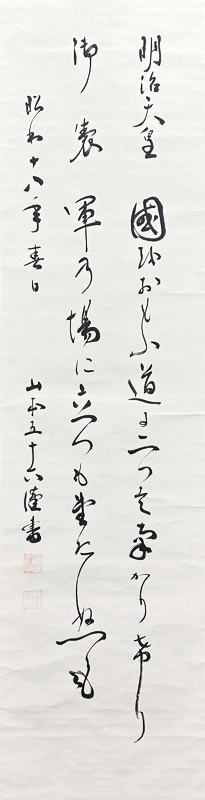 明治天皇 國をおもふ道に二つはなかり希り
御製 軍乃場に立つも堂たぬも
昭和十八年春日 山本五十六謹書